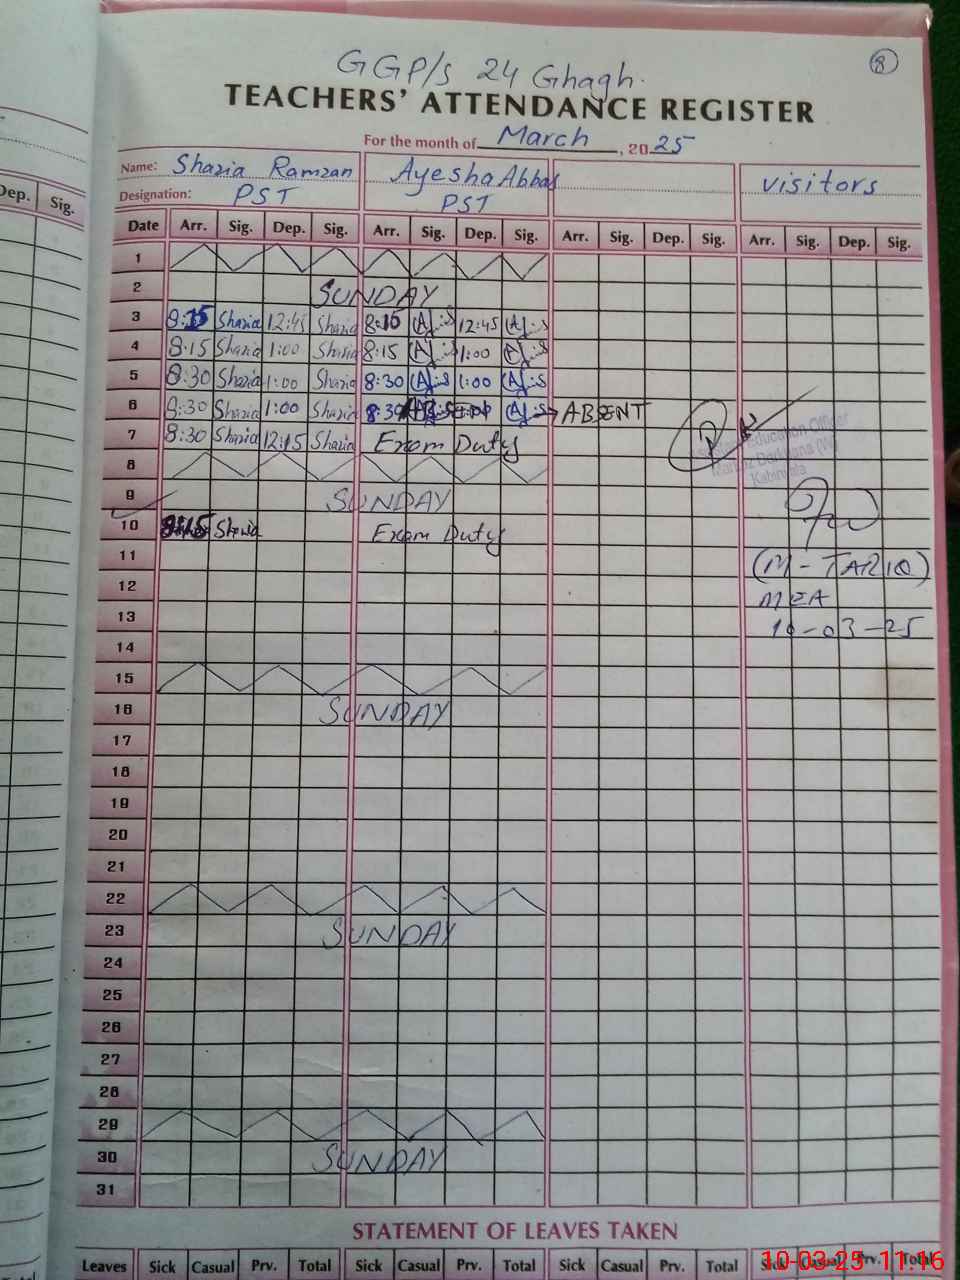 8
GGP/s 24 Ghagh.
TEACHERS' ATTENDANCE REGISTER
For the month of March, 2025
Name: Shazia Ramzan Ayesha Abbas visitors
Designation: PST PST
Dep. Sig.
Date Arr. Sig. Dep. Sig. Arr. Sig. Dep. Sig. Arr. Sig. Dep. Sig. Arr. Sig. Dep. Sig.
1
2 SUNDAY
3 8:15 Shazia 12:45 Shazia 8:15 12:45
4 8:15 Shazia 1:00 Shazia 8:15 1:00
5 8:30 Shazia 1:00 Shazia 8:30 1:00
6 8:30 Shazia 1:00 Shazia 8:30 ABSENT
7 8:30 Shazia 12:15 Shazia Exam Duty
Education Officer
Markaz Darkhana (W)
Kabirwala
8
9 SUNDAY
10 8:15 Shazia Exam Duty
11 (M-TARIQ)
12 MEA
13 10-03-25
14
15
16 SUNDAY
17
18
19
20
21
22
23 SUNDAY
24
25
26
27
28
29
30 SUNDAY
31
STATEMENT OF LEAVES TAKEN
Leaves Sick Casual Prv. Total Sick Casual Prv. Total Sick Casual Prv. Total Sick Casual Prv. Total
10-03-25 11:16